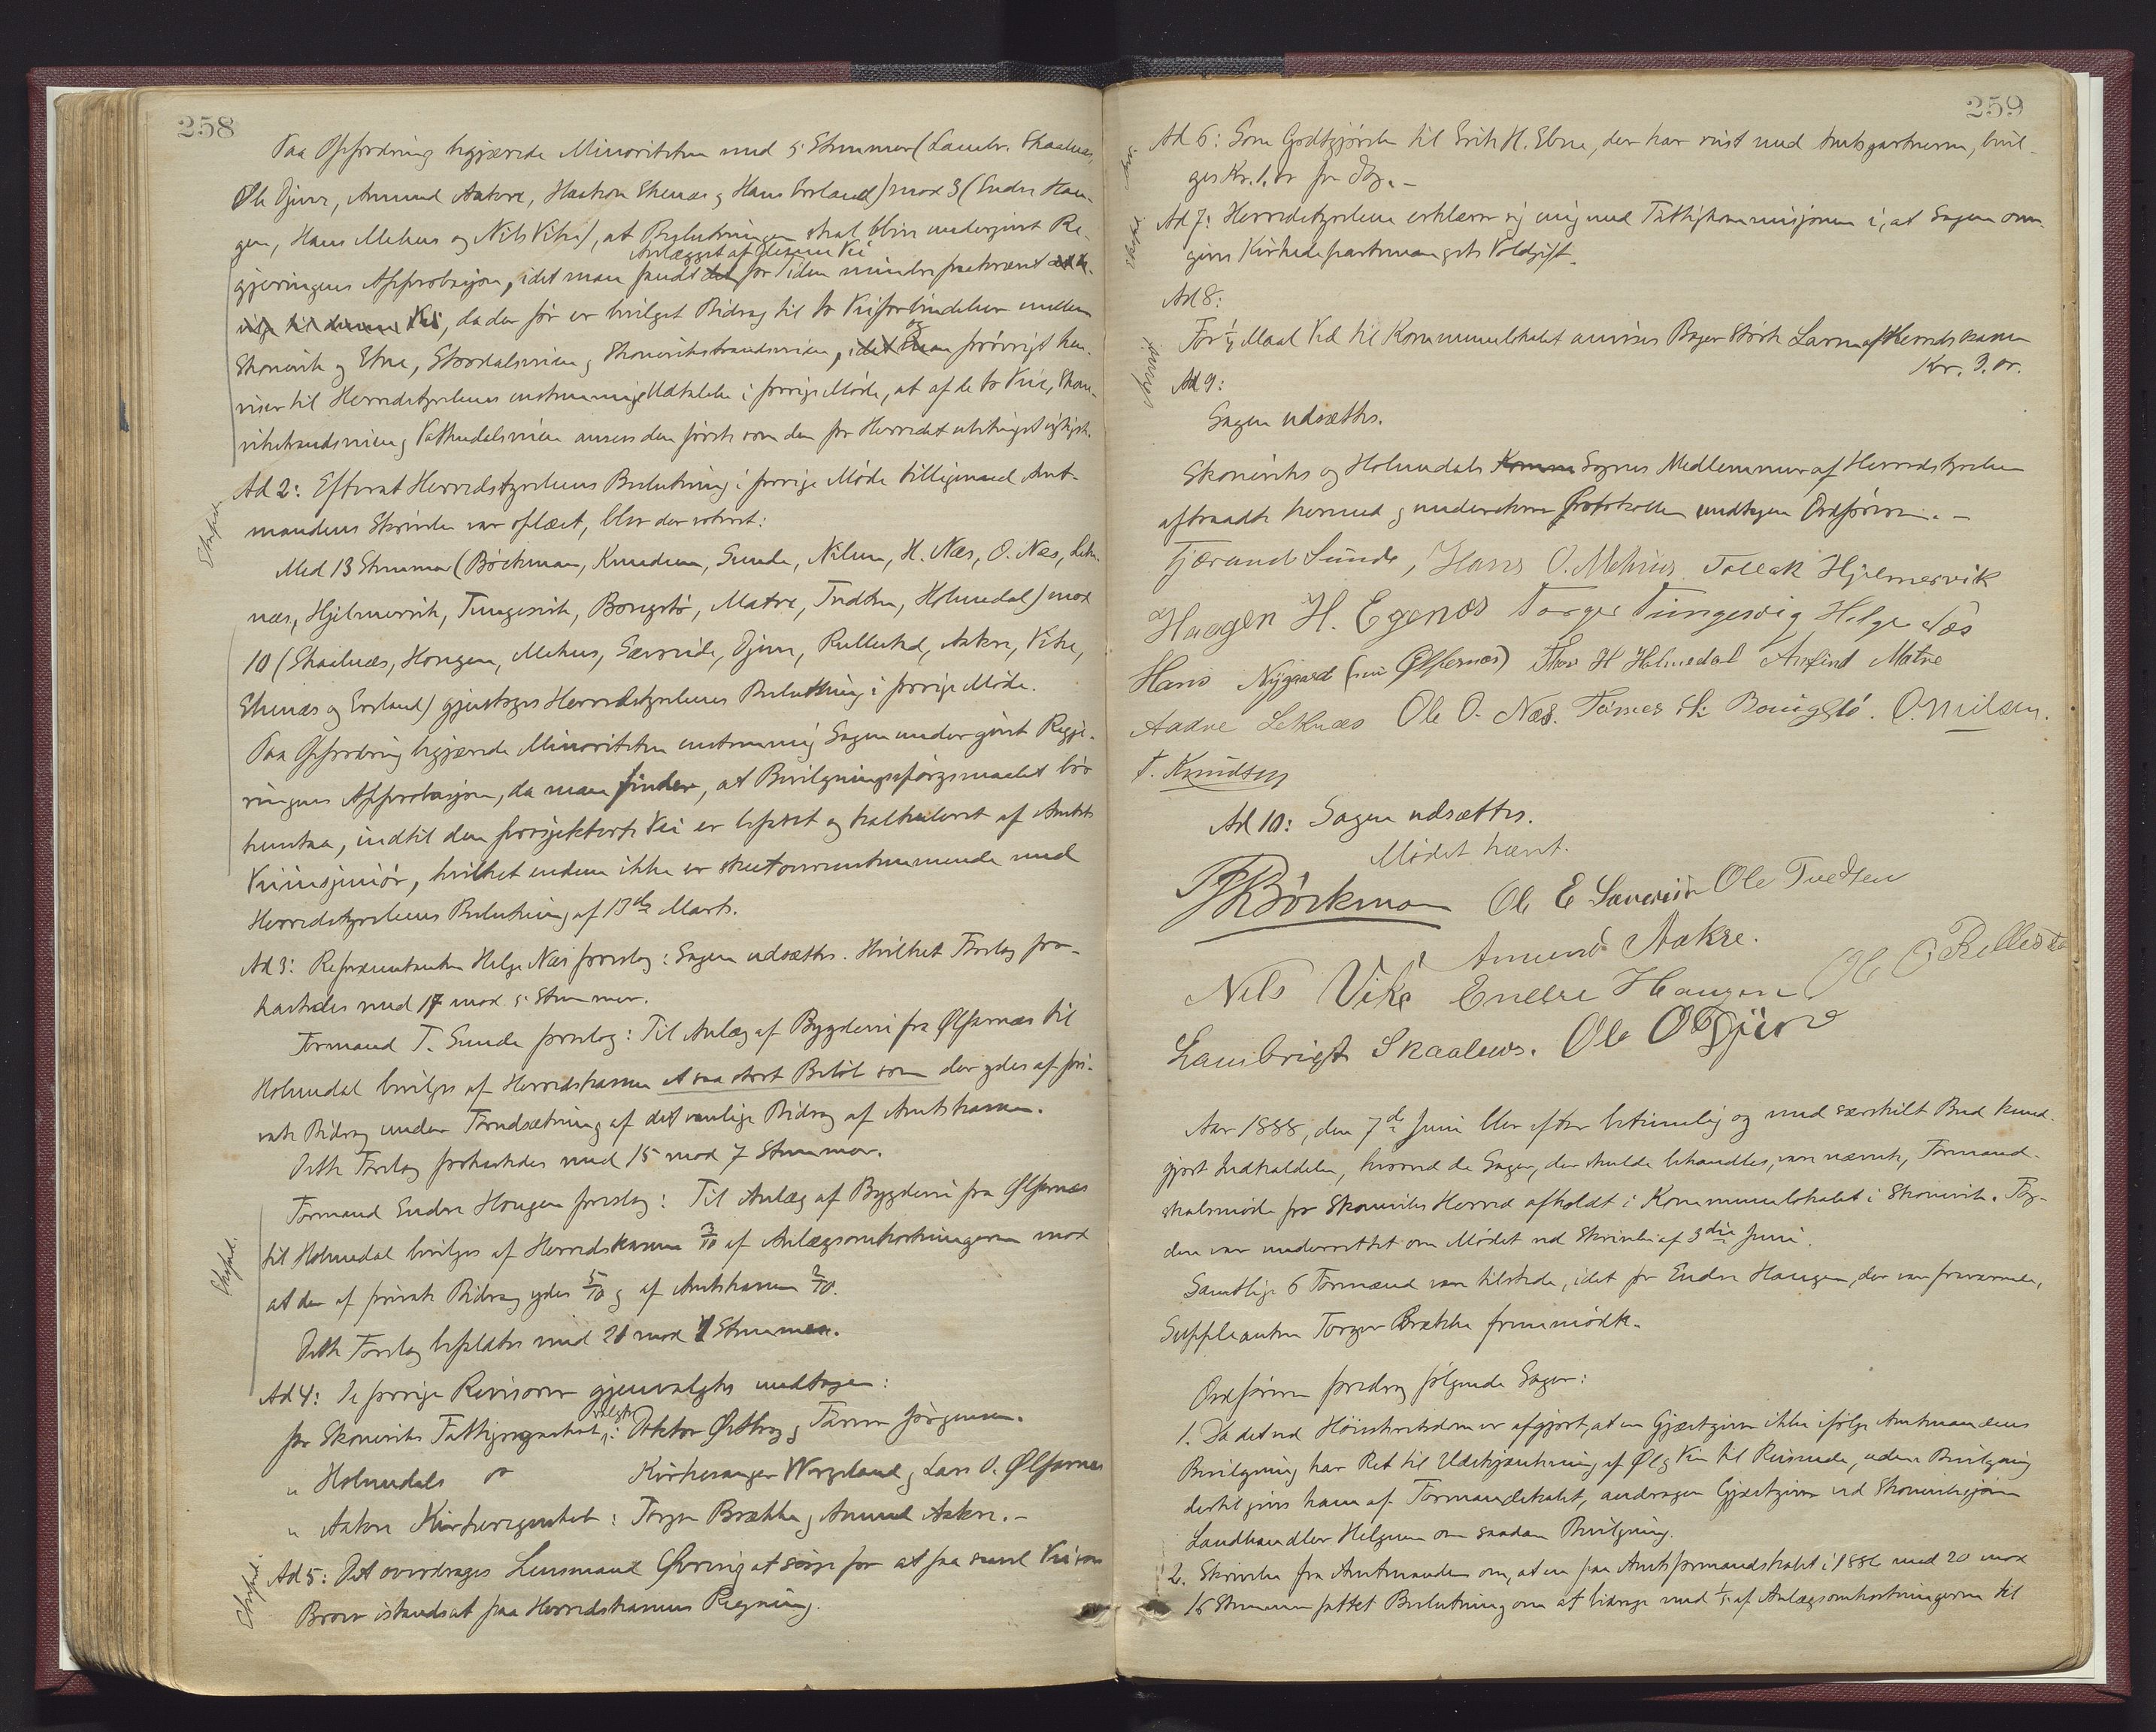 258
Paa Opfordring begjærede Minoriteten med 5 Stemmer (Lambr. Skaalnæs,
Ole Djuve, Amund Aakre, Haakon Ekenæs og Hans Ersland) mod 3 (Endre Hau-
gen, Hans Mehus og Nils Vike), at Beslutningen skal blive undergivet Re-
gjeringens Approbasjon, idet man fandt Anlægget af denne Vei for Tiden mindre paakrævet
, da der før er bevilget Bidrag til to Veiforbindelser mellem
Skonevik og Etne, Stordalsveien og Skoneviksstrandsveien, og forøvrigt hen-
viser til Herredstyrelsens enstemmige Udtalelse i forrige Møde, at af de to Veie, Skone-
viksstrandsveien og Vattendalsveien ansees den første som den for Herredet ubetinget vigtigste.
Ad 2: Efterat Herredstyrelsens Beslutning i forrige Møde tilligemed Amt-
mandens Skrivelse var oplæst, blev der voteret:
Med 13 Stemmer (Böckman, Knudsen, Sunde, Nilsen, H. Næs, O. Næs, Lek-
næs, Hjelmervik, Tungesvik, Bongstø, Matre, Tvedten, Holmedal) mod
10 (Skaalnæs, Haugen, Mehus, Sævereide, Djuve, Rullestad, Aakre, Vike,
Ekenæs og Ersland) gjentoges Herredstyrelsens Beslutning i forrige Møde.
Paa Opfordring begjærede Minoriteten enstemmig Sagen undergivet Regje-
ringens Approbasjon, da man finder, at Bevilgningsspørgsmaalet bør
henstaa, indtil den prosjekterte Vei er befaret og kalkuleret af Amtets
Veiinsjeniør, hvilket endnu ikke er skeet overensstemmende med
Herredstyrelsens Beslutning af 13de Marts.
Ad 3: Repræsentanten Helge Næs foreslog: Sagen udsættes. Hvilket Forslag for-
kastedes med 17 mod 5 Stemmer.
Formand T. Sunde foreslog: Til Anlæg af Bygdevei fra Ølfernæs til
Holmedal bevilges af Herredskassen et saa stort Beløb som der ydes af pri-
vate Bidrag under Forudsætning af det vanlige Bidrag af Amtskassen.
Dette Forslag forkastedes med 15 mod 7 Stemmer.
Formand Endre Haugen foreslog: Til Anlæg af Bygdevei fra Ølfernæs
til Holmedal bevilges af Herredskassen 3/10 af Anlægsomkostningerne mod
at der af private Bidrag ydes 5/10 og af Amtskassen 2/10.
Dette Forslag befaldtes med 21 mod 1 Stemmer.
Ad 4: De forrige Revisorer gjenvalgtes undtagen:
for Skoneviks Fattigregnskab valgtes: Doktor Østbrog og Farver Jørgensen.
" Holmedals do Kirkesanger Wergeland og Lars O. Ølfernæs
" Aakre Kirkeregnskab: Torger Brække og Amund Aakre. -
Ad 5: Det overdrages Lensmand Øvring at sørge for at faa samtl. Veie og
Broer istandsat paa Herredskassens Regning.
Exped.
Exped.
Exped.
259
Ad 6: Som Godtgjørelse til Erik H. Ebne, der har reist med Amtsgartneren, bevil-
ges Kr. 1.00 pr Dag. -
Ad 7: Herredstyrelsen erklærer sig enig med Fattigkommisjonen i, at Sagen om-
gives Kirkedepartementets Voldgift.
Ad 8:
For 1/4 Maal Ved til Kommunelokalet anvises Bager Størk Larsen af Herredskassen
Kr. 3.00.
Ad 9:
Sagen udsættes.
Skoneviks og Holmedals Sognes Medlemmer af Herredstyrelsen
aftraadte hermed og underskrev Protokollen undtagen Ordføreren. -
Tjærand Sunde, Hans O. Mehus Tollak Hjelmervik
Haagen H. Egenæs Torger Tungesvig Helge Næs
Hans Nygaard (Ølfernæs) Thor H Holmedal Arnfind Matre
Aadne Leknæs Ole O. Næs. Tomes Bongstø. O. Nielsen.
T. Knudsen
Ad 10: Sagen udsættes.
Mødet hævet.
Böckman Ole E Sævereide Ole Tvedten
Nils Vike Amund Aakre.
Endre Haugen Ole O Rullestad
Lambrigt Skaalnes. Ole O Djuve
Aar 1888, den 7de Juni blev efter betimelig og med særskilt Bud kund-
gjort Indkaldelse, hvorved de Sager, der skulde behandles, vare nævnte, Formand-
skabsmøde for Skoneviks Herred afholdt i Kommunelokalet i Skonevik. Fog-
den var underrettet om Mødet ved Skrivelse af 3die Juni.
Samtlige 6 Formænd vare tilstede, idet for Endre Haugen, der var fraværende,
Suppleanten Torger Brække fremmødte.
Ordføreren foredrog følgende Sager:
1. Da det ved Høiesteretsdom er afgjort, at en Gjæstgiver ikke ifølge Amtmandens
Bevilgning har Ret til Udskjænkning af Øl og Vin til Reisende, uden Bevilgning
dertil gives ham af Formandskabet, andrager Gjæstgiver ved Skoneviksjøen
Landhandler Helgesen om saadan Bevilgning.
2. Skrivelse fra Amtmanden om, at en paa Amtsformandskabet i 1886 med 20 mod
15 Stemmer fattet Beslutning om at bidrage med 1/5 af Anlægsomkostningerne til